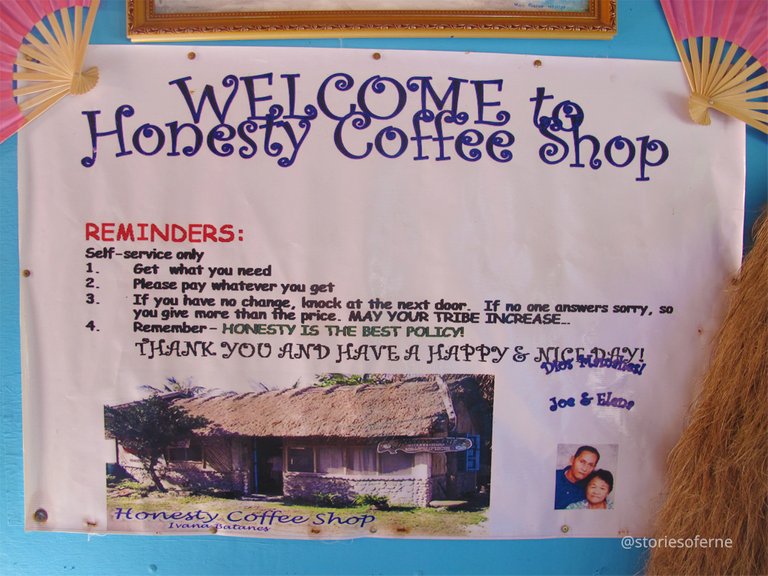 WELCOME to
Honesty Coffee Shop
REMINDERS:
Self-service only
1. Get what you need
2. Please pay whatever you get
3. If you have no change, knock at the next door. If no one answers sorry, so
you give more than the price. MAY YOUR TRIBE INCREASE...
4. Remember - HONESTY IS THE BEST POLICY!
THANK YOU AND HAVE A HAPPY & NICE DAY!
Dios Mamajes!
Joe & Elena
Honesty Coffee Shop
Ivana Batanes
@storiesoferne